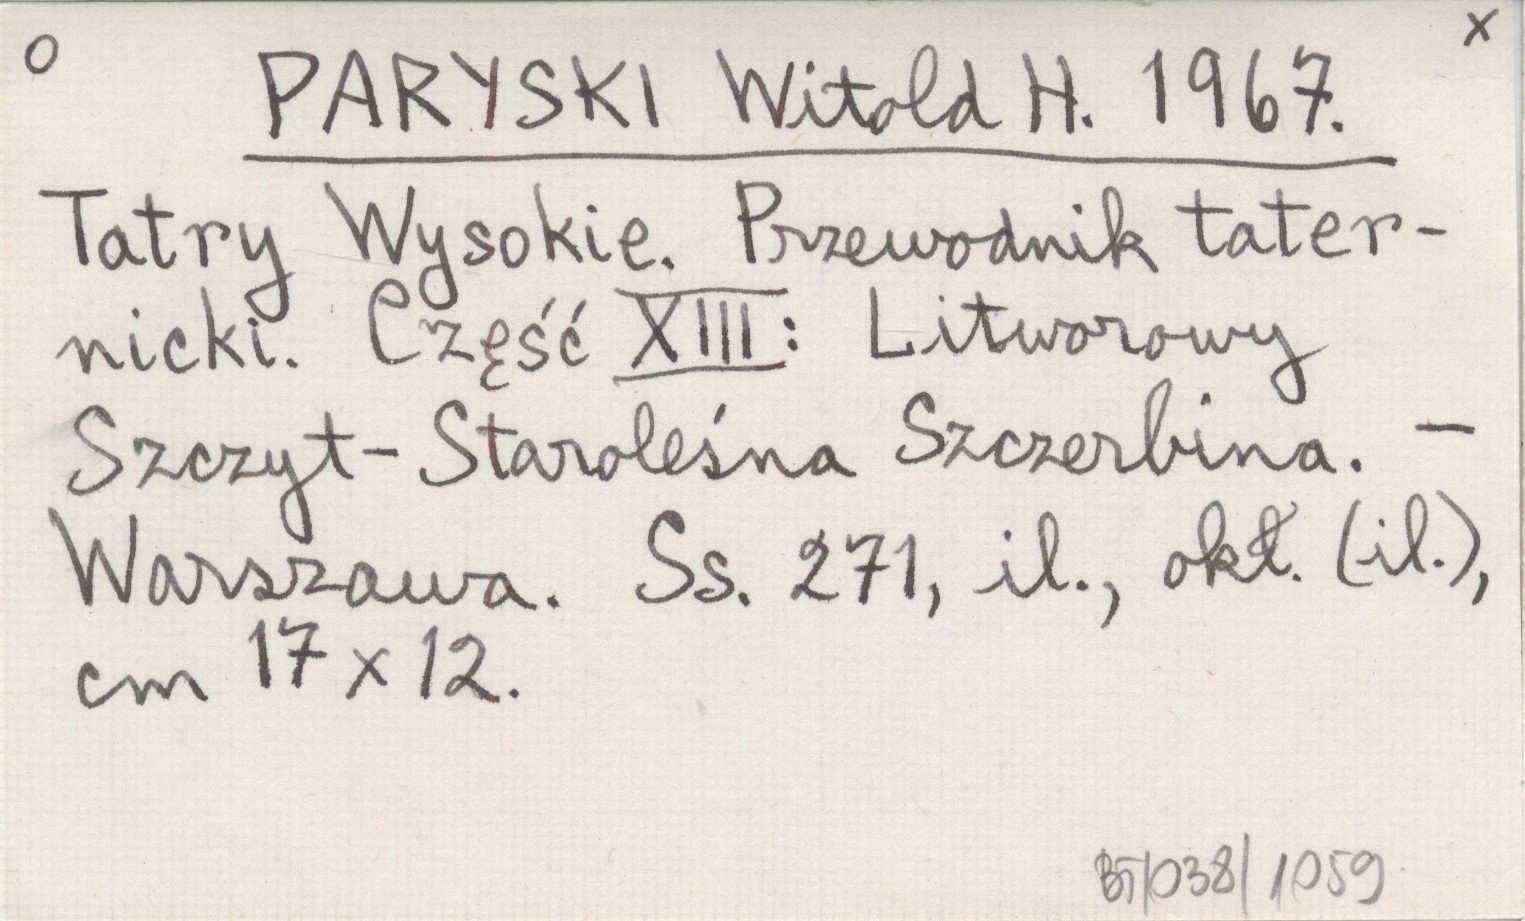 O
x
PARYSKI Witold H. 1967.
Tatry Wysokie. Przewodnik tater-
nicki. Część XIII: Litworowy
Szczyt - Staroleśna Szczerbina. —
Warszawa. Ss. 271, il., okł. (il.),
cm 17 x 12.
BT/038/1059